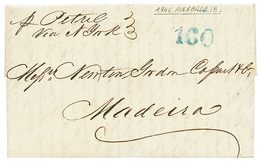 p Petrel
Via N York
1846 ALEXANDRIA
160
Messrs Newton Gordon Cossart & Co
Madeira